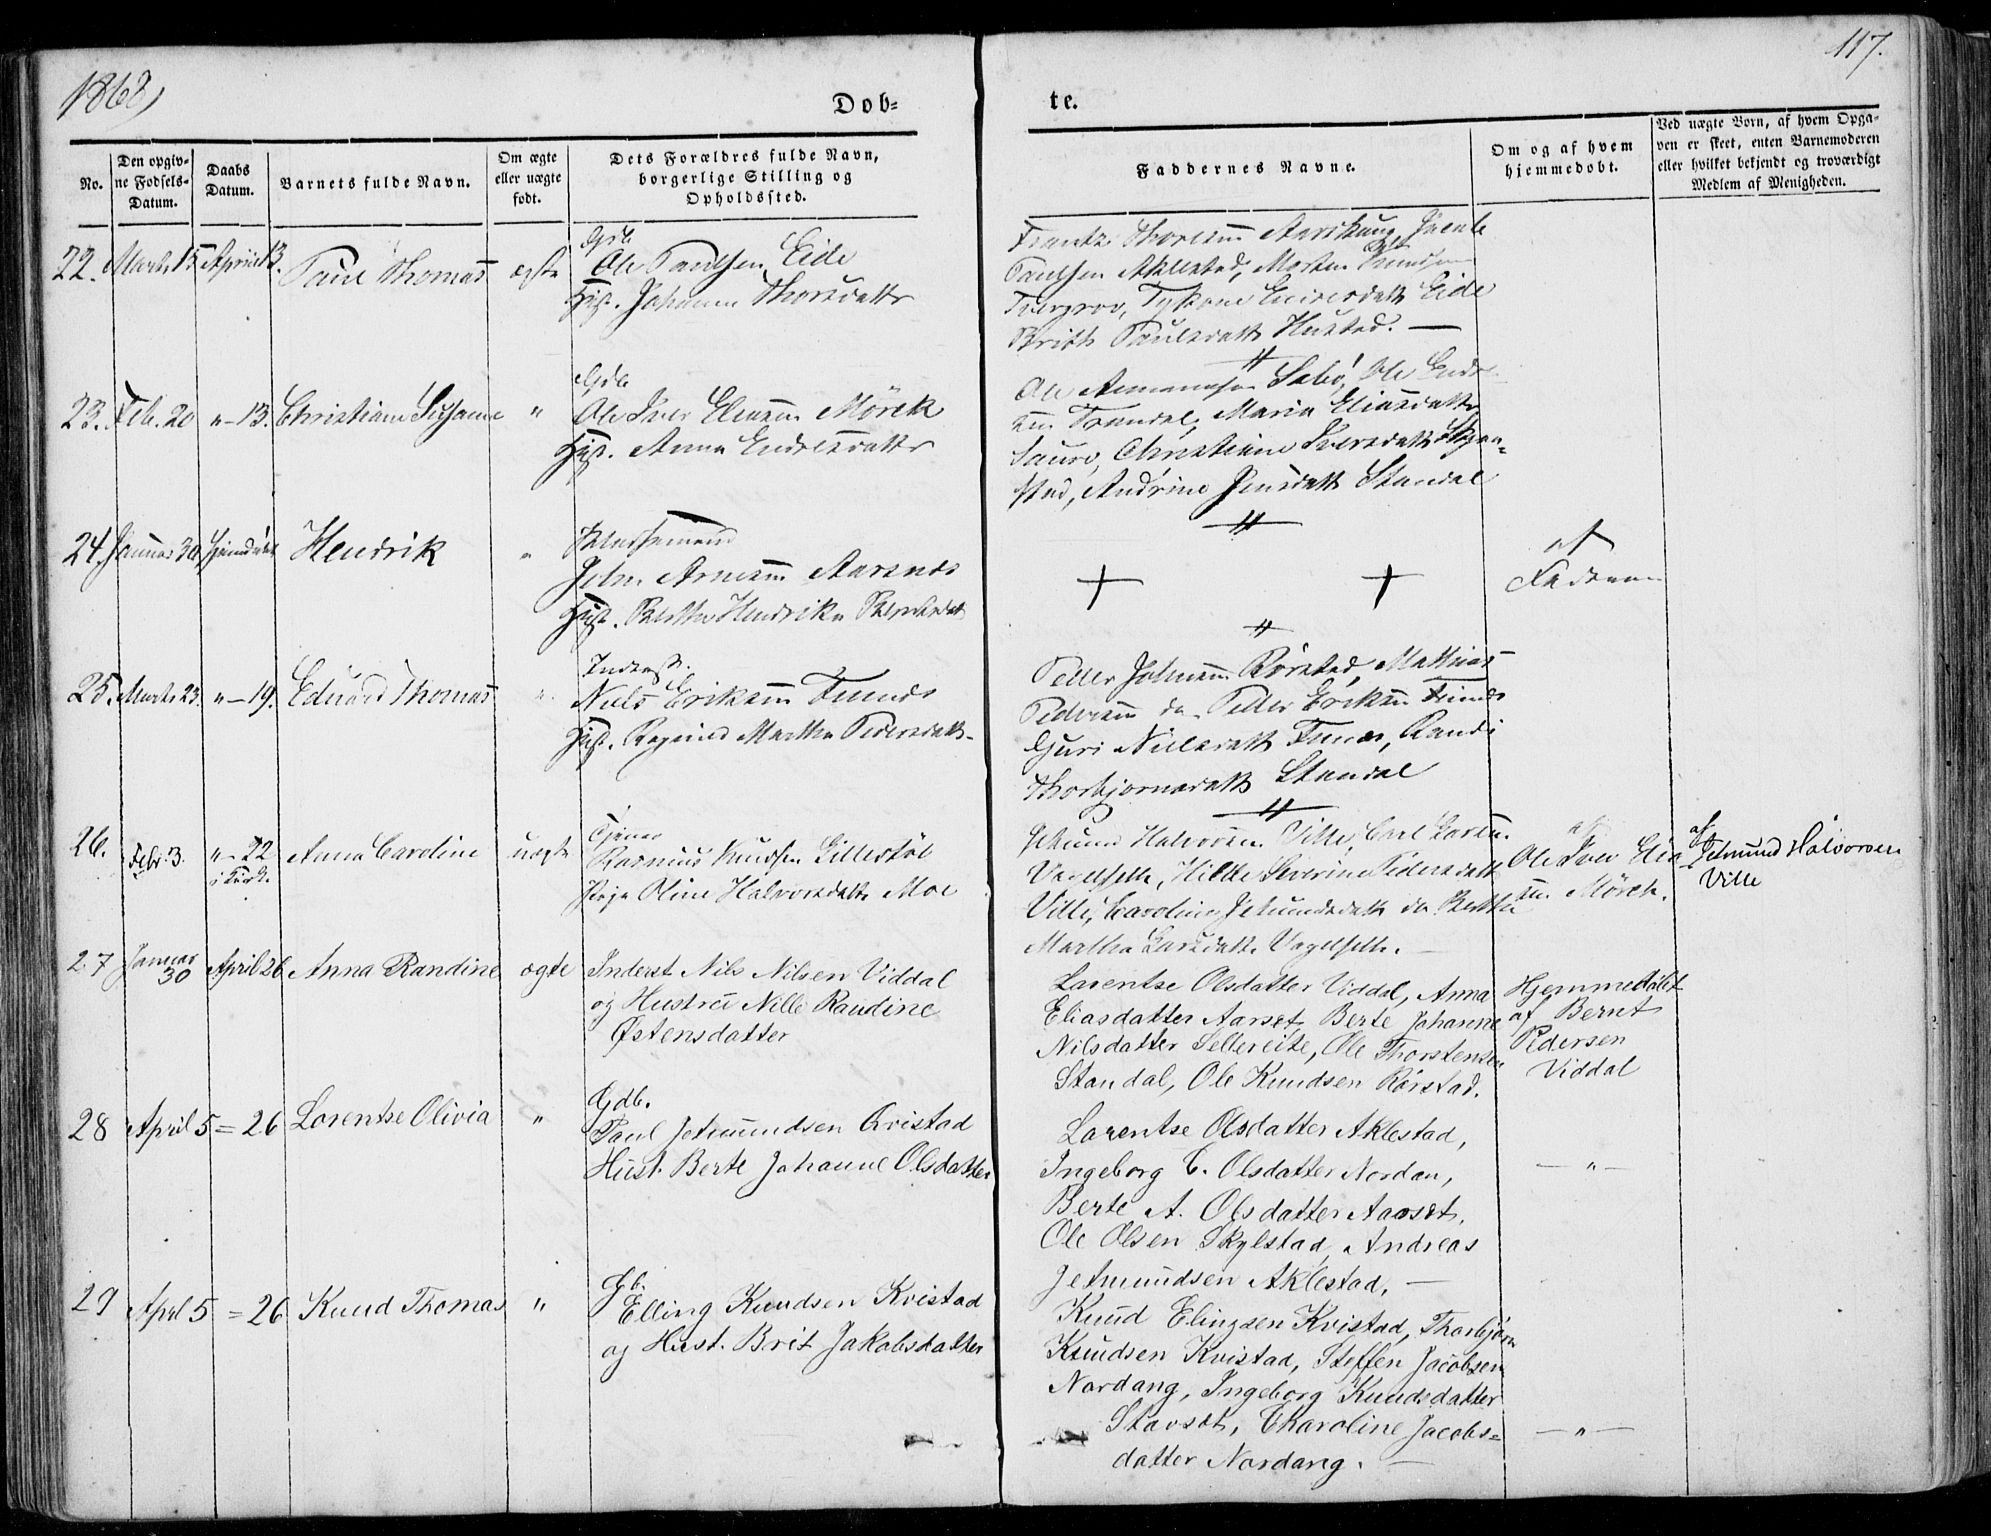 1868
117.
Døb=
te.
No.
Den opgiv-
ne Fødsels-
Datum.
Daabs
Datum.
Barnets fulde Navn.
Om ægte
eller uægte
født.
Dets Forældres fulde Navn,
borgerlige Stilling og
Opholdssted.
Faddernes Navne.
Om og af hvem
hjemmedøbt.
Ved uægte Børn, af hvem Opga-
ven er skeet, enten Barnemoderen
eller hvilket bekjendt og troværdigt
Medlem af Menigheden.
22. Marts 15 April 13. Paul Thomas ægte
Gdb
Ole Paulsen Eide
Hust. Johanne Thorsdatter
Paulsen Aklestad, Morten Knudsen
Eide
Brith Paulsdatt Hustad. —
23. Feb. 20 "—13. Christiane Susanne "
Gdb
Ole Iver Eliassen Mörek
Hust. Anna Endresdatter
Ole Sæbö, Ole Endre-
sen Trandal, Maria Eliasdatter
Christiane Iversdatt Skjaa-
stad, Andrine Jensdatt Standal
24. Januar 30 Hendrik "
John Arnesen Aarsnes
Hust. Berthe Hendrikke
+ +
af
Faderen
25. Marts 23. "—19. Eduard Thomas "
Inderst.
Niels Eriksen Finnes
Hust. Martha Pedersdatt.
Peder Johnsen Rörstad, Mathias
Pedersen do Peder Eriksen Finnes
Guri Nielsdatt Finnes, Randi
Thorbjornsdatt Standal
26. Febr 3. "—22 Anna Caroline uægte
i Kirk.
Tjener
Rasmus Knudsen Lillestöl
Pige Oline Halvorsdatter Moe
Jetmund Halvorsen Ville, Carl Larsen
Hilde Severine Pedersdatt
Ville, Caroline Jetmundsdatt do Berthe
Martha Larsdatt.
af
Ole Iver Elia-
sen Mörek.
af
Jetmund Halvorsen
Ville
27 Januar 30 April 26 Anna Randine ægte
Inderst Nils Nilsen Viddal
og Hustru Nille Randine
Østensdatter
Larentse Olsdatter Viddal, Anna
Eliasdatter Aarset, Berte Johanne
Nilsdatter Sellereite, Ole Thorstensen
Standal, Ole Knudsen Rörstad.
Hjemmedöbt
af Bernt
Pedersen
Viddal
28 April 5 = 26 Lorentse Olivia "
Gdb.
Paul Jetmundsen Qvistad
Hust. Berte Johanne Olsdatter
Larentse Olsdatter Aklestad,
Ingeborg C. Olsdatter Nordan,
Berte A. Olsdatter Aarset,
Ole Olsen Skylstad, Andreas
Jetmundsen Aklestad. —
— " —
29 April 5 = 26 Knud Thomas "
Gb.
Elling Knudsen Kvistad
og Hust. Brit Jakobsdatter
Knud Elingsen Kvistad, Thorbjörn
Knudsen Kvistad, Steffen Jacobsen
Nordang, Ingeborg Knudsdatter
Stavset, Charoline Jacobs=
datter Nordang. —
— " —